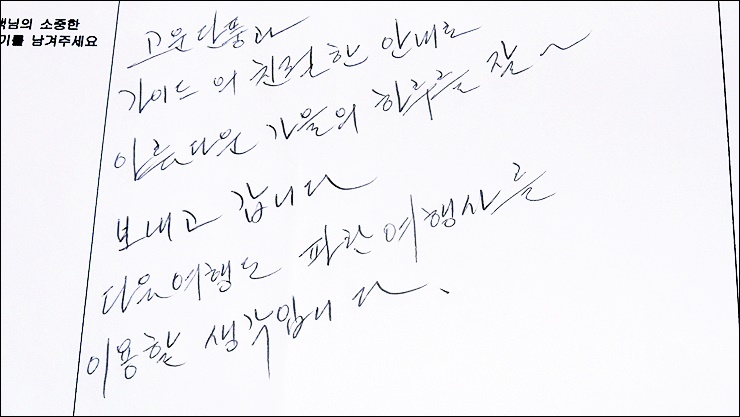 객님의 소중한
기를 남겨주세요
고운단풍과
가이드의 친절한 안내로
아름다운 가을의 하루를 잘~
보내고 갑니다
다음여행도 파란여행사를
이용할 생각입니다.